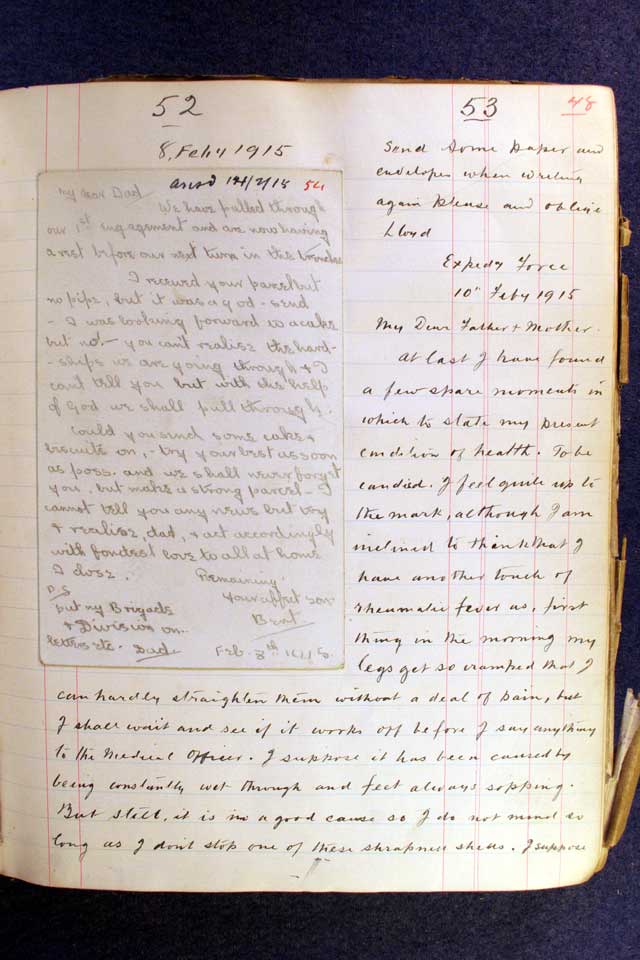 52
8, Feby 1915
arivd 14/2/15 54
My dear Dad
We have pulled through
our 1st engagement and are now having
a rest before our next turn in the trenches
I received your parcel but
no pipe, but it was a god-send
- I was looking forward to a cake
but no! - you can't realise the hard-
-ships we are going through & I
can't tell you but with the help
of God we shall pull through.
Could you send some cake &
biscuits on, - try your best as soon
as poss. and we shall never forget
you, but make a strong parcel - I
cannot tell you any news but try
& realise, dad, & act accordingly
with fondest love to all at home
I close.
Remaining
Your affect son
Bert.
P.S
put my Brigade
& Division on
letters etc. Dad
Feb. 8th 1915.
53
48
Send some paper and
envelopes when writing
again please and oblige
Lloyd
Expedy Force
10" Feby 1915
My Dear Father & Mother.
At last I have found
a few spare moments in
which to state my present
condition of health. To be
candied. I feel quite up to
the mark, although I am
inclined to think that I
have another touch of
rheumatic fever as, first
thing in the morning my
legs get so cramped that I
can hardly straighten them without a deal of pain, but
I shall wait and see if it works off before I say anything
to the Medical Officer. I suppose it has been caused by
being constantly wet through and feet always sopping.
But still, it is in a good cause so I do not mind so
long as I don't stop one of these shrapnell shells. I suppose